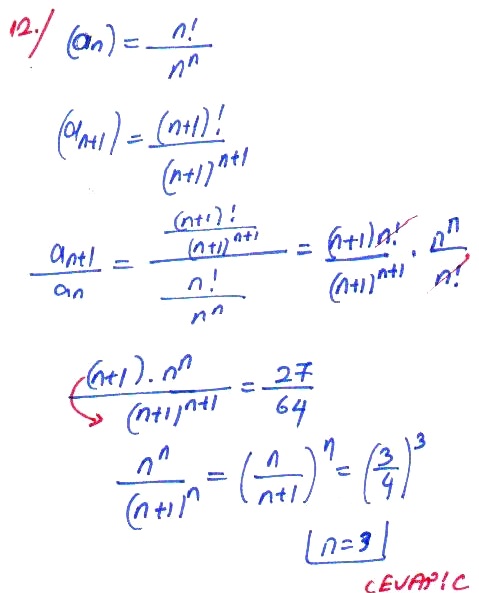 12./ (aₙ) = n!/nⁿ
(aₙ₊₁) = (n+1)!/(n+1)ⁿ⁺¹
aₙ₊₁/aₙ = ((n+1)!/(n+1)ⁿ⁺¹)/(n!/nⁿ) = (n+1)n!/(n+1)ⁿ⁺¹ · nⁿ/n!
(n+1).nⁿ/(n+1)ⁿ⁺¹ = 27/64
nⁿ/(n+1)ⁿ = (n/(n+1))ⁿ = (3/4)³
n=3
CEVAP C